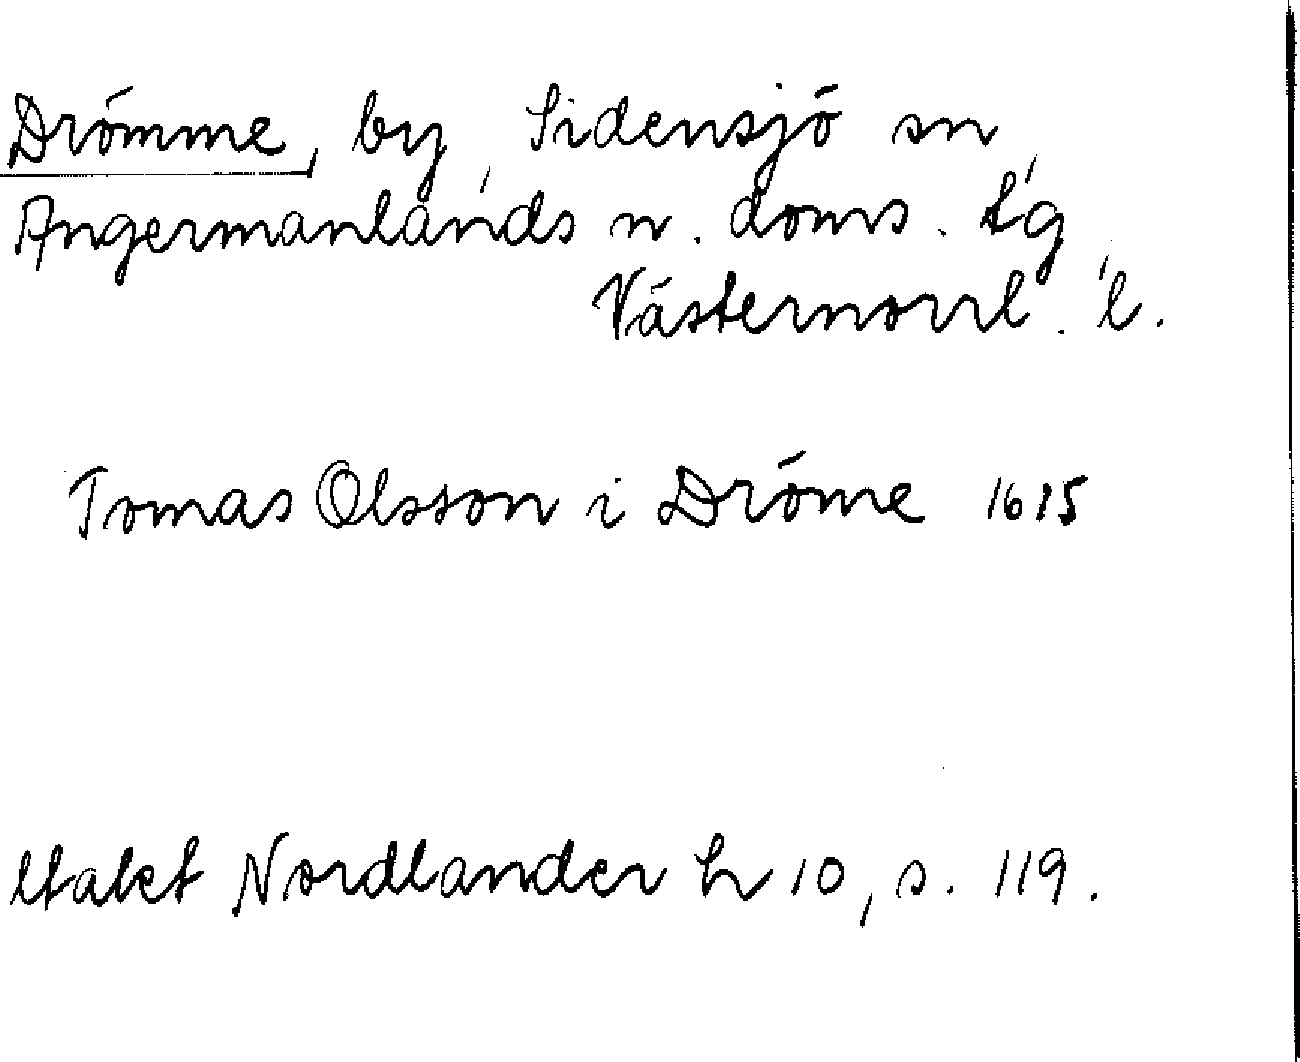 Drömme, by, Sidensjö sn,
Ångermanlands n. doms. tg,
Västernorrl. l.
Tomas Olsson i Dröme 1615
Utdét Nordlander h 10, s. 119.